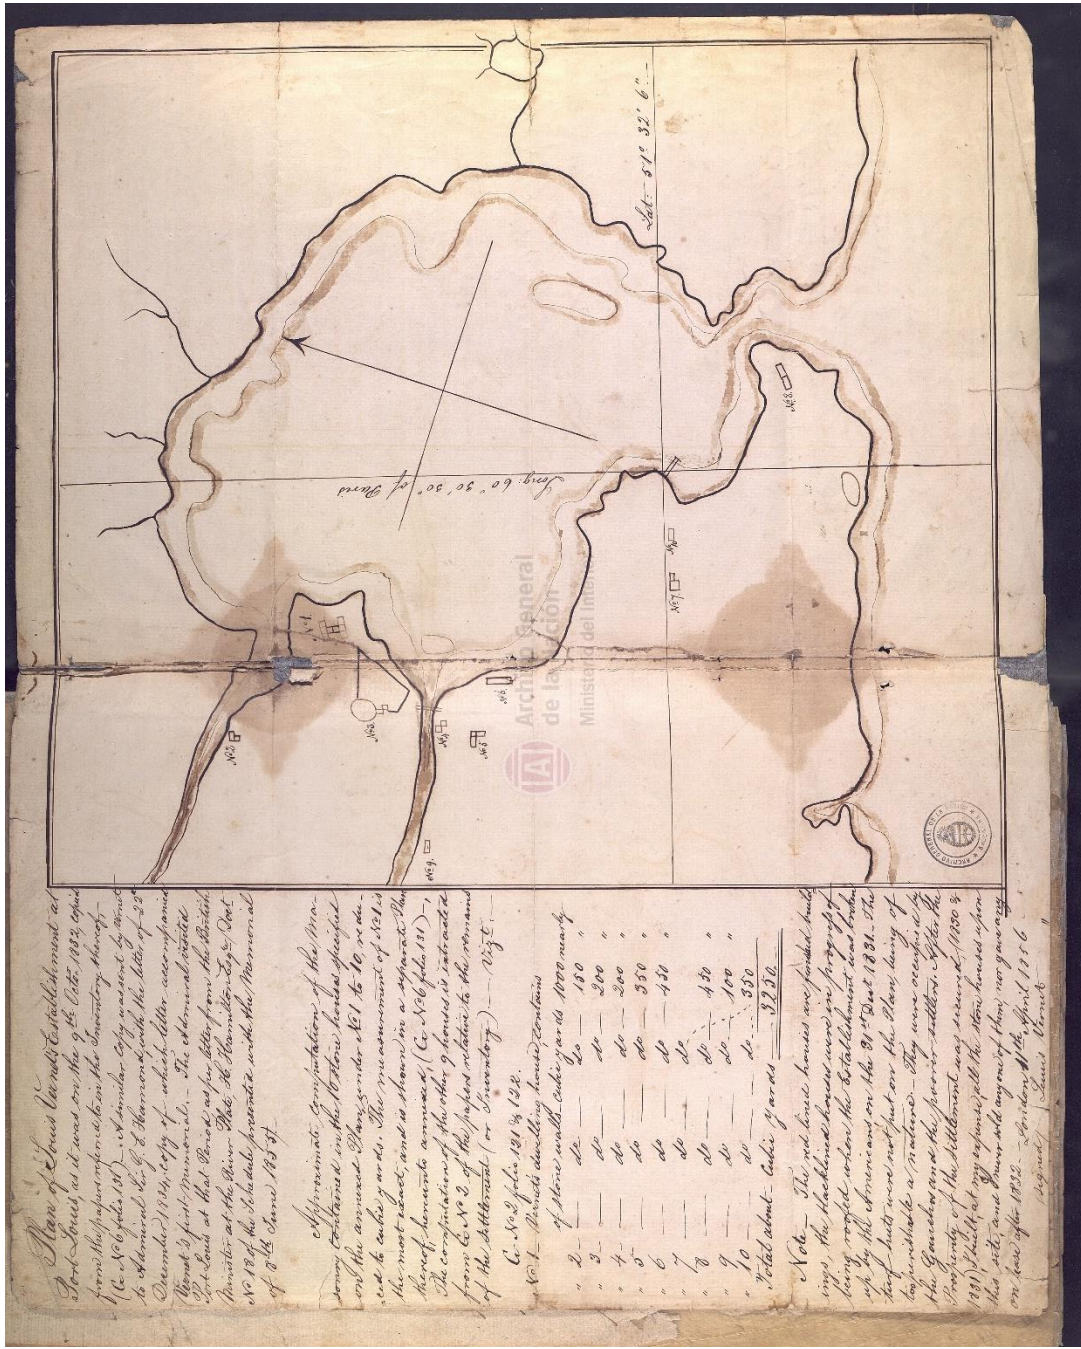 Plan of Louis Vernet's Establishment at
Port Louis as it was on the 9th Octr. 1832, copied
from the papers remanata in the Inventory thereof,
(Ca. No 6 folio 131). A similar copy was sent by Vernet
to Admiral Sir G. E. Hamond with the letter of 22d
Decembre 1834, copy of which letter accompanied
Vernet's first Memorial. — The Admiral visited
Port Louis at that Period as per letter from the British
Minister at the River Plate H. Hamilton Esqr. Doct
No 18 of the Schedule presented with the Memorial
of 8th June 1855.
Approximate computation of the Ma-
sonry contained in the 10 stone houses specified
on the annexed Plan, under No 1 to 10, redu-
ced to cubic yards. The measurement of No 1 is
the most exact, and is shown in a separate Plan
thereof, hereunto annexed, (Ca. No 6 folio 131) —
The computation of the other 9 houses is extracted
from Ca. No 2 of the papers relative to the remains
of the Settlement (or Inventory) — Vizt. —
Ca. No 2 folios 121 & 122.
No 1 Vernet's dwelling house contains
of stone walls cubic yards 1000 nearly
" 2 — do — do — 150 "
" 3 — do — do — 200 "
" 4 — do — do — 200 "
" 5 — do — do — 350 "
" 6 — do — do — 450 "
" 7 — do — do
" 8 — do — do — 450 "
" 9 — do — do — 100 "
" 10 — do — do — 350 "
Total about Cubic Yards 3250.
Note — The red lined houses are finished build-
ings, the black lined houses were in progress of
being roofed when the Establishment was broken
up by the Americans on the 31st Decr 1831 — The
turf huts were not put on the Plan, being of
too perishable a nature — They were occupied by
the Gauchos and the poorer settlers. After the
Prosperity of the Settlement was secured, (1830 &
1831) I built at my expense, all the stone houses upon
this site, and I never sold any one of them, nor gave any
on lease after 1832 — London 11th April 1856
signed / Louis Vernet "
Lat: 51° 32' 6" —
Long: 60° 30' 30" of Paris
No 1.
No 2.
No 3.
No 4.
No 5
No 6.
No 7.
No 8.
No 9.
No 10
Archivo General
de la Nación
Ministerio del Interior
ARCHIVO GENERAL DE LA NACION